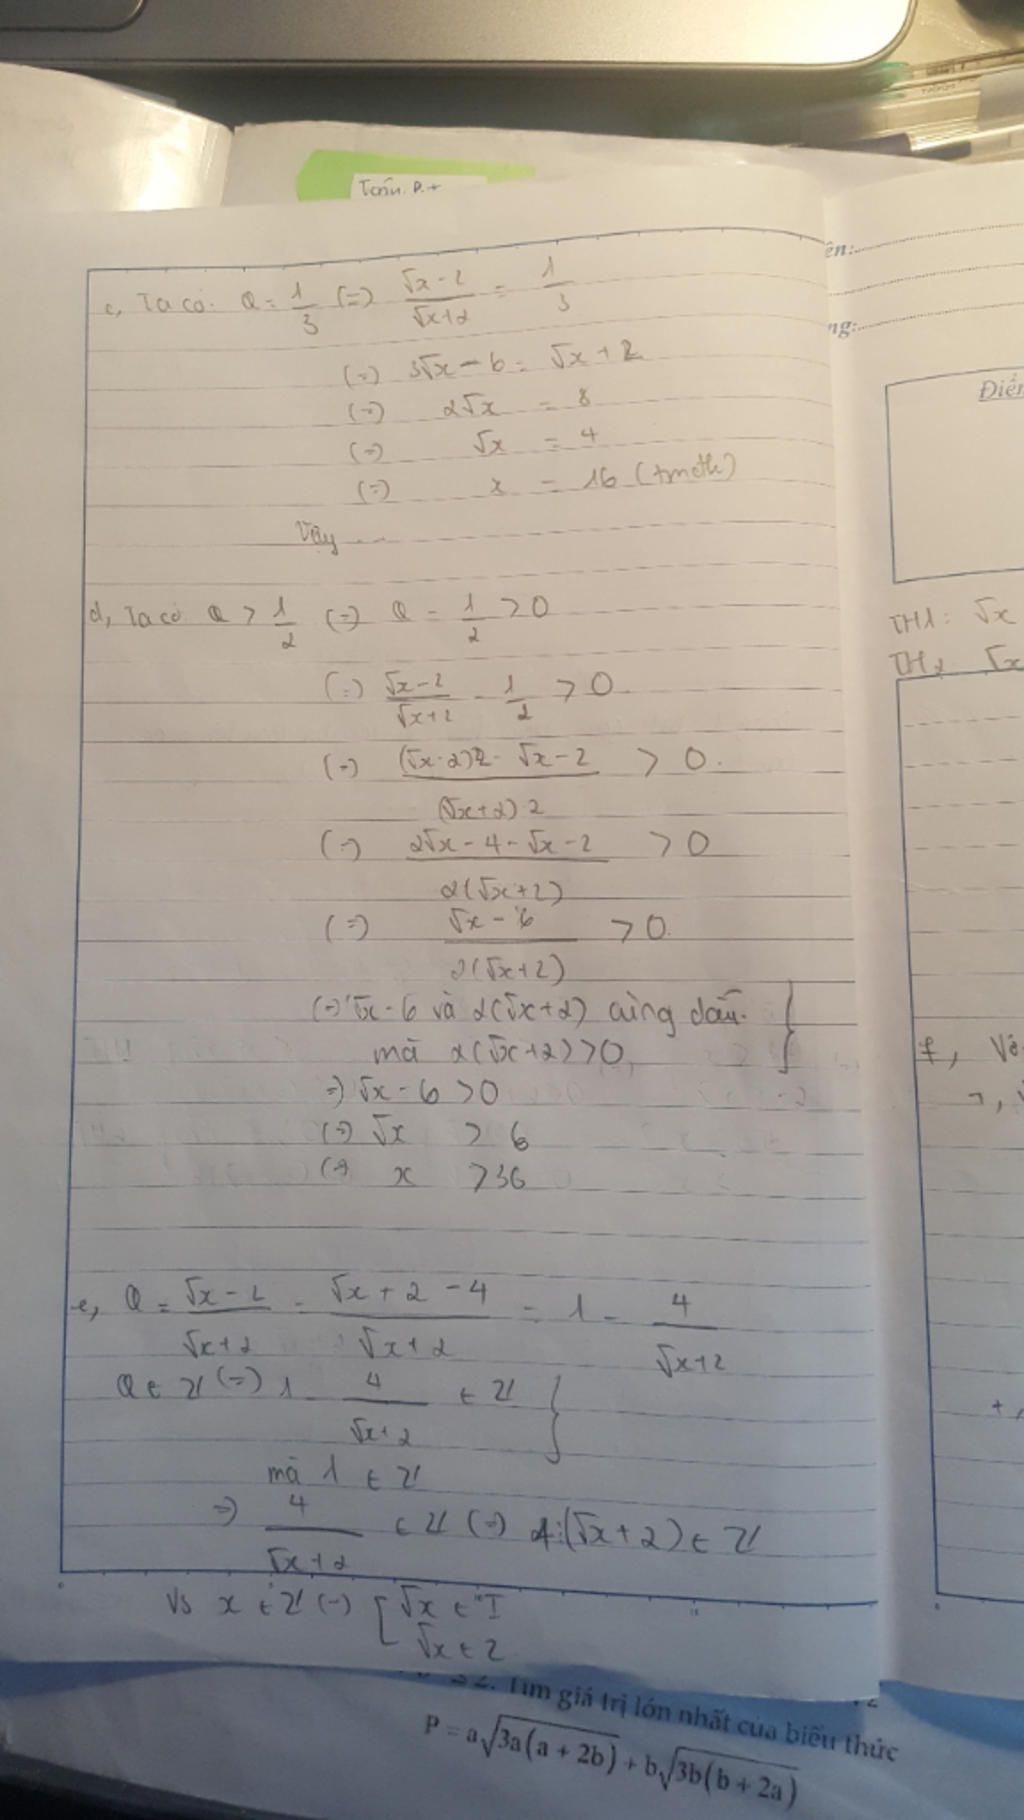 Toán. P.+
c, Ta có: Q = 1/3 (=) (√x-2)/(√x+2) = 1/3
(=) 3√x - 6 = √x + 2
(=) 2√x = 8
(=) √x = 4
(=) x = 16 (tmđk)
Vậy ...
d, Ta có Q > 1/2 (=) Q - 1/2 > 0
(=) (√x-2)/(√x+2) - 1/2 > 0
(=) ((√x-2)2 - √x-2)/((√x+2)2) > 0.
(=) (2√x - 4 - √x - 2)/(2(√x+2)) > 0
(=) (√x - 6)/(2(√x+2)) > 0.
(=) √x - 6 và 2(√x+2) cùng dấu.
mà 2(√x+2) > 0
=) √x - 6 > 0
(=) √x > 6
(=) x > 36
e, Q = (√x-2)/(√x+2) = (√x + 2 - 4)/(√x + 2) = 1 - 4/(√x+2)
Q ∈ Z (=) 1 - 4/(√x+2) ∈ Z }
mà 1 ∈ Z
=) 4/(√x+2) ∈ Z (=) 4:(√x+2) ∈ Z
Vs x ∈ Z (=) [ √x ∈ I
√x ∈ Z
ên:
ng:
Điểm
TH1: √x
TH2 √x
f, Vớ
+,
Tìm giá trị lớn nhất của biểu thức
P = a√3a(a + 2b) + b√3b(b + 2a)